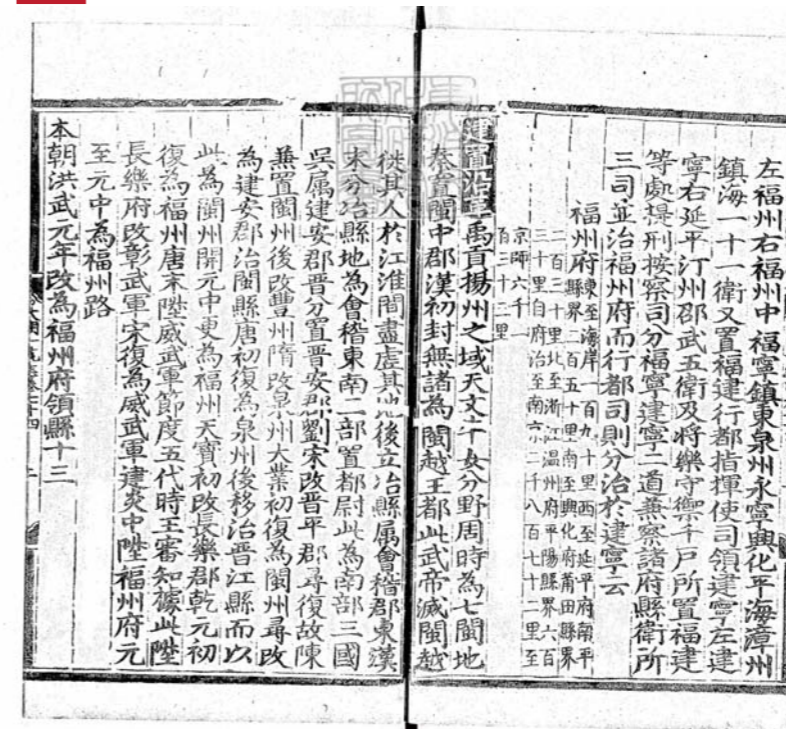 左福州右福州中福寧鎮東泉州永寧興化平海漳州
鎮海一十一衛又置福建行都指揮使司領建寧左建
寧右延平汀州邵武五衛及將樂守禦千戶所置福建
等處提刑按察司分福寧建寧二道兼察諸府縣衛所
三司並治福州府而行都司則分治於建寧云
福州府
東至海岸一百九十里西至延平府南平
縣界二百五十里南至興化府莆田縣界
二百三十里北至浙江温州府平陽縣界六百
三十里自府治至南京二千八百七十二里至
京師六千一
百三十二里
建置沿革禹貢揚州之域天文牛女分野周時為七閩地
秦置閩中郡漢初封無諸為閩越王都此武帝滅閩越
徙其人於江淮間盡虛其地後立冶縣属會稽郡東漢
末分冶縣地為會稽東南二部置都尉此為南部三國
吳属建安郡晉分置晉安郡劉宋改晉平郡尋復故陳
兼置閩州後改豐州隋改泉州大業初復為閩州尋改
為建安郡治閩縣唐初復為泉州後移治晉江縣而以
此為閩州開元中更為福州天寶初改長樂郡乾元初
復為福州唐末陞威武軍節度五代時王審知據此陞
長樂府改彰武軍宋復為威武軍建炎中陞福州府元
至元中為福州路
本朝洪武元年改為福州府領縣十三